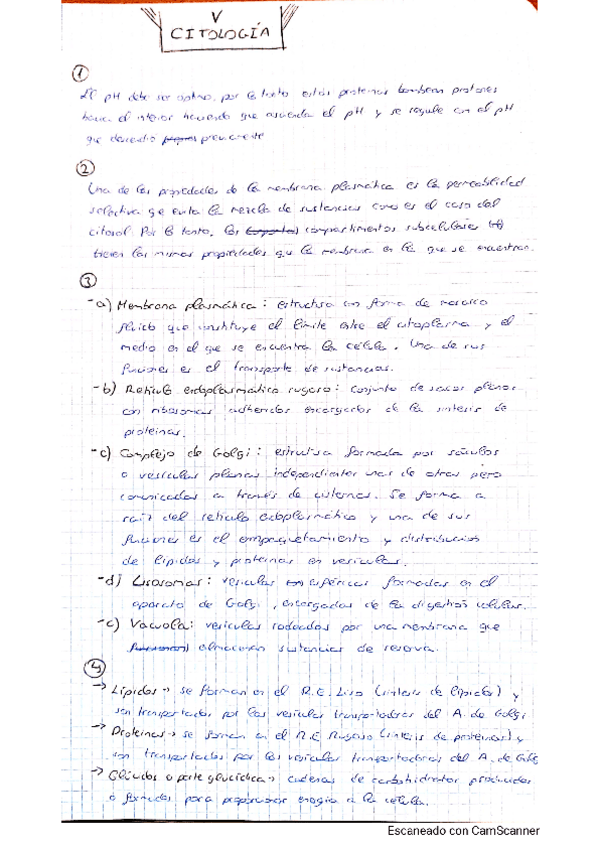 V
CITOLOGÍA
1
El pH debe ser óptimo, por lo tanto estas proteinas bombean protones
hacia el interior haciendo que ascienda el pH y se regule con el pH
que
2
Una de las propiedades de la membrana plasmática es la permeabilidad
selectiva que evita la mezcla de sustancias como es el caso del
citosol. Por lo tanto, los compartimentos subcelulares
tienen las mismas propiedades que la membrana en la que se encuentran.
3
-a) Membrana plasmática: estructura con forma de mosaico
fluido que constituye el límite entre el citoplasma y el
medio en el que se encuentra la célula. Una de sus
funciones es el transporte de sustancias.
-b) Retículo endoplasmático rugoso: conjunto de sacos planos
con ribosomas adheridos encargados de la síntesis de
proteinas.
-c) Complejo de Golgi: estructura formada por sáculos
o vesículas planas independientes unas de otras pero
comunicadas a través de cisternas. Se forma a
raíz del retículo endoplasmático y una de sus
funciones es el empaquetamiento y distribución
de lípidos y proteinas en vesículas.
-d) Lisosomas: vesículas esféricas formadas en el
aparato de Golgi, encargadas de la digestión celular.
-e) Vacuola: vesículas rodeadas por una membrana que
almacenan sustancias de reserva.
4
→ Lípidos → se forman en el R.E. Liso (síntesis de lípidos) y
son transportados por las vesículas transportadoras del A. de Golgi
→ Proteinas → se forman en el R.E Rugoso (síntesis de proteinas) y
son transportadas por las vesículas transportadoras del A. de Golgi
→ Glúcidos o parte glucídica → cadenas de carbohidratos producidas
o formadas para proporcionar energía a la célula.
Escaneado con CamScanner